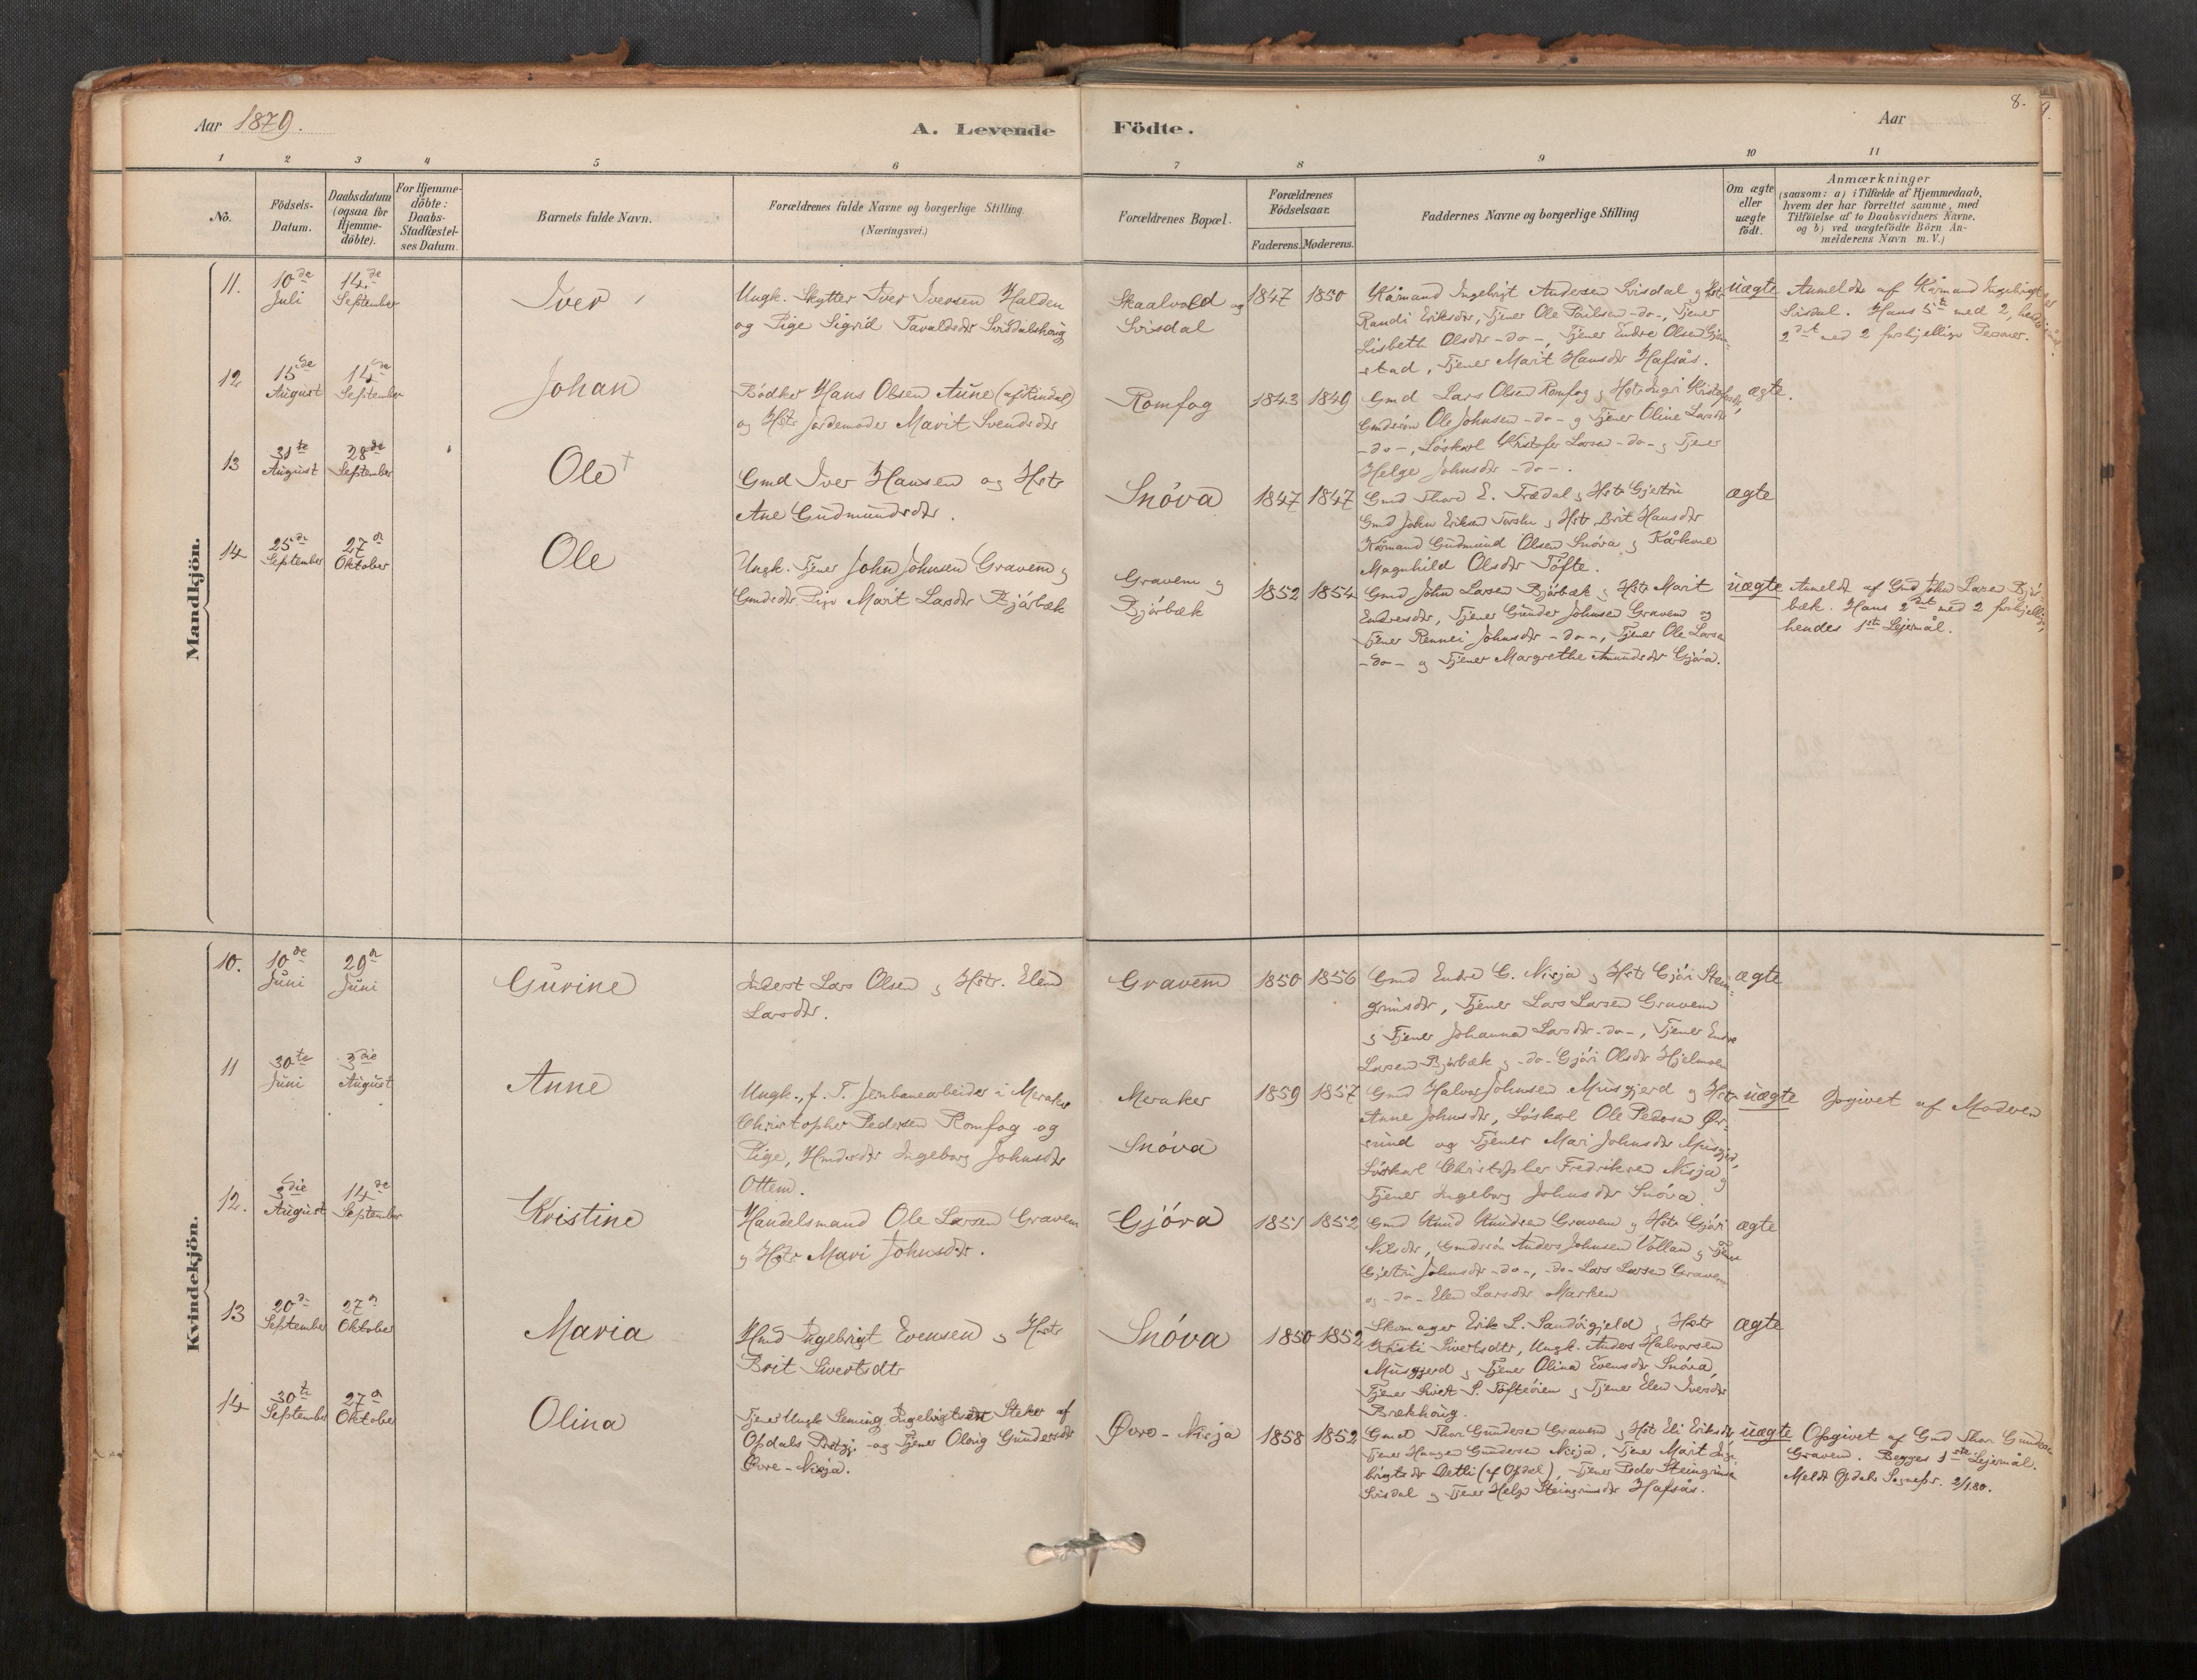 Aar 1879.
A. Levende Födte.
Aar
8.
9.
1 2 3 4 5 6 7 8 9 10 11
No.
Födsels-
Datum.
Daabsdatum
(ogsaa for
Hjemme-
döbte).
For Hjemme-
döbte:
Daabs-
Stadfæstel-
ses Datum.
Barnets fulde Navn.
Forældrenes fulde Navne og borgerlige Stilling.
(Næringsvei.)
Forældrenes Bopæl.
Forældrenes
Födselsaar.
Faderens. Moderens.
Faddernes Navne og borgerlige Stilling
Om ægte
eller
uægte
födt.
Anmærkninger
(saasom: a) i Tilfælde af Hjemmedaab,
hvem der har forrettet samme, med
Tilföielse af to Daabsvidners Navne.
og b) ved uægtefödte Börn An-
melderens Navn m. V.)
Mandkjön.
11.
10de
Juli
14de
September
Iver
Ungk. Skytter Iver Iversen Halden
og Pige Sigrid Tavaldsdtr Svisdalshoug
Skaalvold og
Svisdal
1847 1850
Kårmand Ingebrigt Andersen Svisdal og Hstr
Randi Eriksdtr, Tjener Ole Poulsen -do-, Tjener
Lisbeth Olsdtr -do-, Tjener Endre Olsen
-stad, Tjener Marit Hansdtr Hafsås.
uægte
Anmeldt af Kårmand Ingebrigt
Svisdal. Hans 5te med 2, hendes
2det med 2 forskjellige Personer.
12
15de
August
14de
September
Johan
Bödker Hans Olsen Aune (af Rindal)
og Hstr Jordemoder Marit Svendsdtr
Romfog
1843 1849
Gmd Lars Olsen Romfog og Hstr Ingri Kristofersdtr,
Gmdssön Ole Johnsen -do- og Tjener Oline Larsdtr
-do-, Löskarl Kristofer Larsen -do- og Tjener
Helge Johnsdtr -do-.
ægte.
13
31te
August
28de
September
Ole †
Gmd Iver Hansen og Hstr
Ane Gudmundsdtr.
Snöva
1847 1847
Gmd Thore E. Trædal og Hstr Gjertru
Gmd John Eriksen og Hstr Brit Hansdtr
Kårmand Gudmund Olsen Snöva og Kårkone
Magnhild Olsdtr Töfte.
ægte
14
25de
September
27de
Oktober
Ole
Ungk. Tjener John Johnsen Gravem og
Gmdsdtr Pige Marit Larsdtr Bjørbæk
Gravem og
Bjørbæk
1852 1854
Gmd John Larsen Bjørbæk og Hstr Marit
Endresdtr, Tjener Gunder Johnsen Gravem og
Tjener Rennei Johnsdtr -do-, Tjener Ole Larsen
-do- og Tjener Margrethe Amundsdtr Gjöra.
uægte
Anmeldt af Gmd John Larsen Bjør-
bæk. Hans 2det med 2 forskjellige,
hendes 1ste Lejermål.
Kvindekjön.
10.
10de
Juni
29de
Juni
Gurine
Inderst Lars Olsen og Hstr. Elen
Larsdtr.
Gravem
1850 1856
Gmd Endre G. Nisja og Hstr Gjöri Stein-
grimsdtr, Tjener Lars Larsen Gravem
og Tjener Johanna Larsdtr -do-, Tjener Endre
Larsen Bjørbæk og -do- Gjöri Olsdtr Hjelmoen
ægte
11
30te
Juni
3die
August
Anne
Ungk., f. T. Jernbanearbeider i Meraker
Christopher Pedersen Romfog og
Pige, Hmdsdtr Ingeborg Johnsdtr
Ottem.
Meraker
Snöva
1859 1857
Gmd Halvor Johnsen Musgjerd og Hstr
Anne Johnsdtr, Löskarl Ole Pedersen Ør-
sund og Tjener Mari Johnsdtr Musgjerd,
Löskarl Christopher Fredriksen Nisja og
Tjener Ingeborg Johnsdtr Snöva.
uægte
Opgivet af Moderen
12.
3die
August
14de
September
Kristine
Handelsmand Ole Larsen Gravem
og Hstr Mari Johnsdtr.
Gjöra
1851 1852
Gmd Knud Knudsen Gravem og Hstr Gjöri
Nilsdtr, Gmdssön Anders Johnsen Vollan og Tjener
Gjertru Johnsdtr -do-, -do- Lars Larsen Gravem
og -do- Elen Larsdtr Marken
ægte
13
20de
September
27de
Oktober
Maria
Hmd Ingebrigt Evensen og Hstr
Brit Sivertsdtr
Snöva
1850 1852
Skomager Erik L. Sandöigjeld og Hstr
Kristi Sivertsdtr, Ungk. Anders Halvorsen
Musgjerd og Tjener Olina Evensdtr Snöva,
Tjener Sivert S. Töfteöien og Tjener Elen Iversdtr
Brækhoug.
ægte
14
30te
September
27de
Oktober
Olina
Tjener Ungk Seming Ingebrigtsen Steker af
Opdals Prstgj. og Tjener Oloug Gundersdtr
Øvre-Nisja.
Øvre-Nisja
1858 1852
Gmd Thor Gundersen Gravem og Hstr Eli Eriksdtr,
Tjener Haagen Gundersen Nisja, Tjener Marit Inge-
brigtsdtr Detli (af Opdal), Tjener Peder Steingrimsen
Svisdal og Tjener Helge Steingrimsdtr Hafsås.
uægte
Opgivet af Gmd Thor Gundersen
Gravem. Begges 1ste Lejermål.
Meldt Opdals Sognepr. 2/1.80.